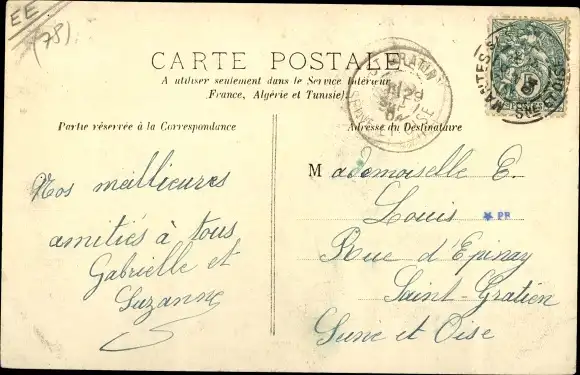 EE
(78)
CARTE POSTALE
A utiliser seulement dans le Service Intérieur
(France, Algérie et Tunisie).
Partie réservée à la Correspondance
Adresse du Destinataire
Nos meilleures
amitiés à tous
Gabrielle et
Suzanne
Mademoiselle E.
Louis
PR
Rue d'Epinay
Saint-Gratien
Seine et Oise
MANTES S